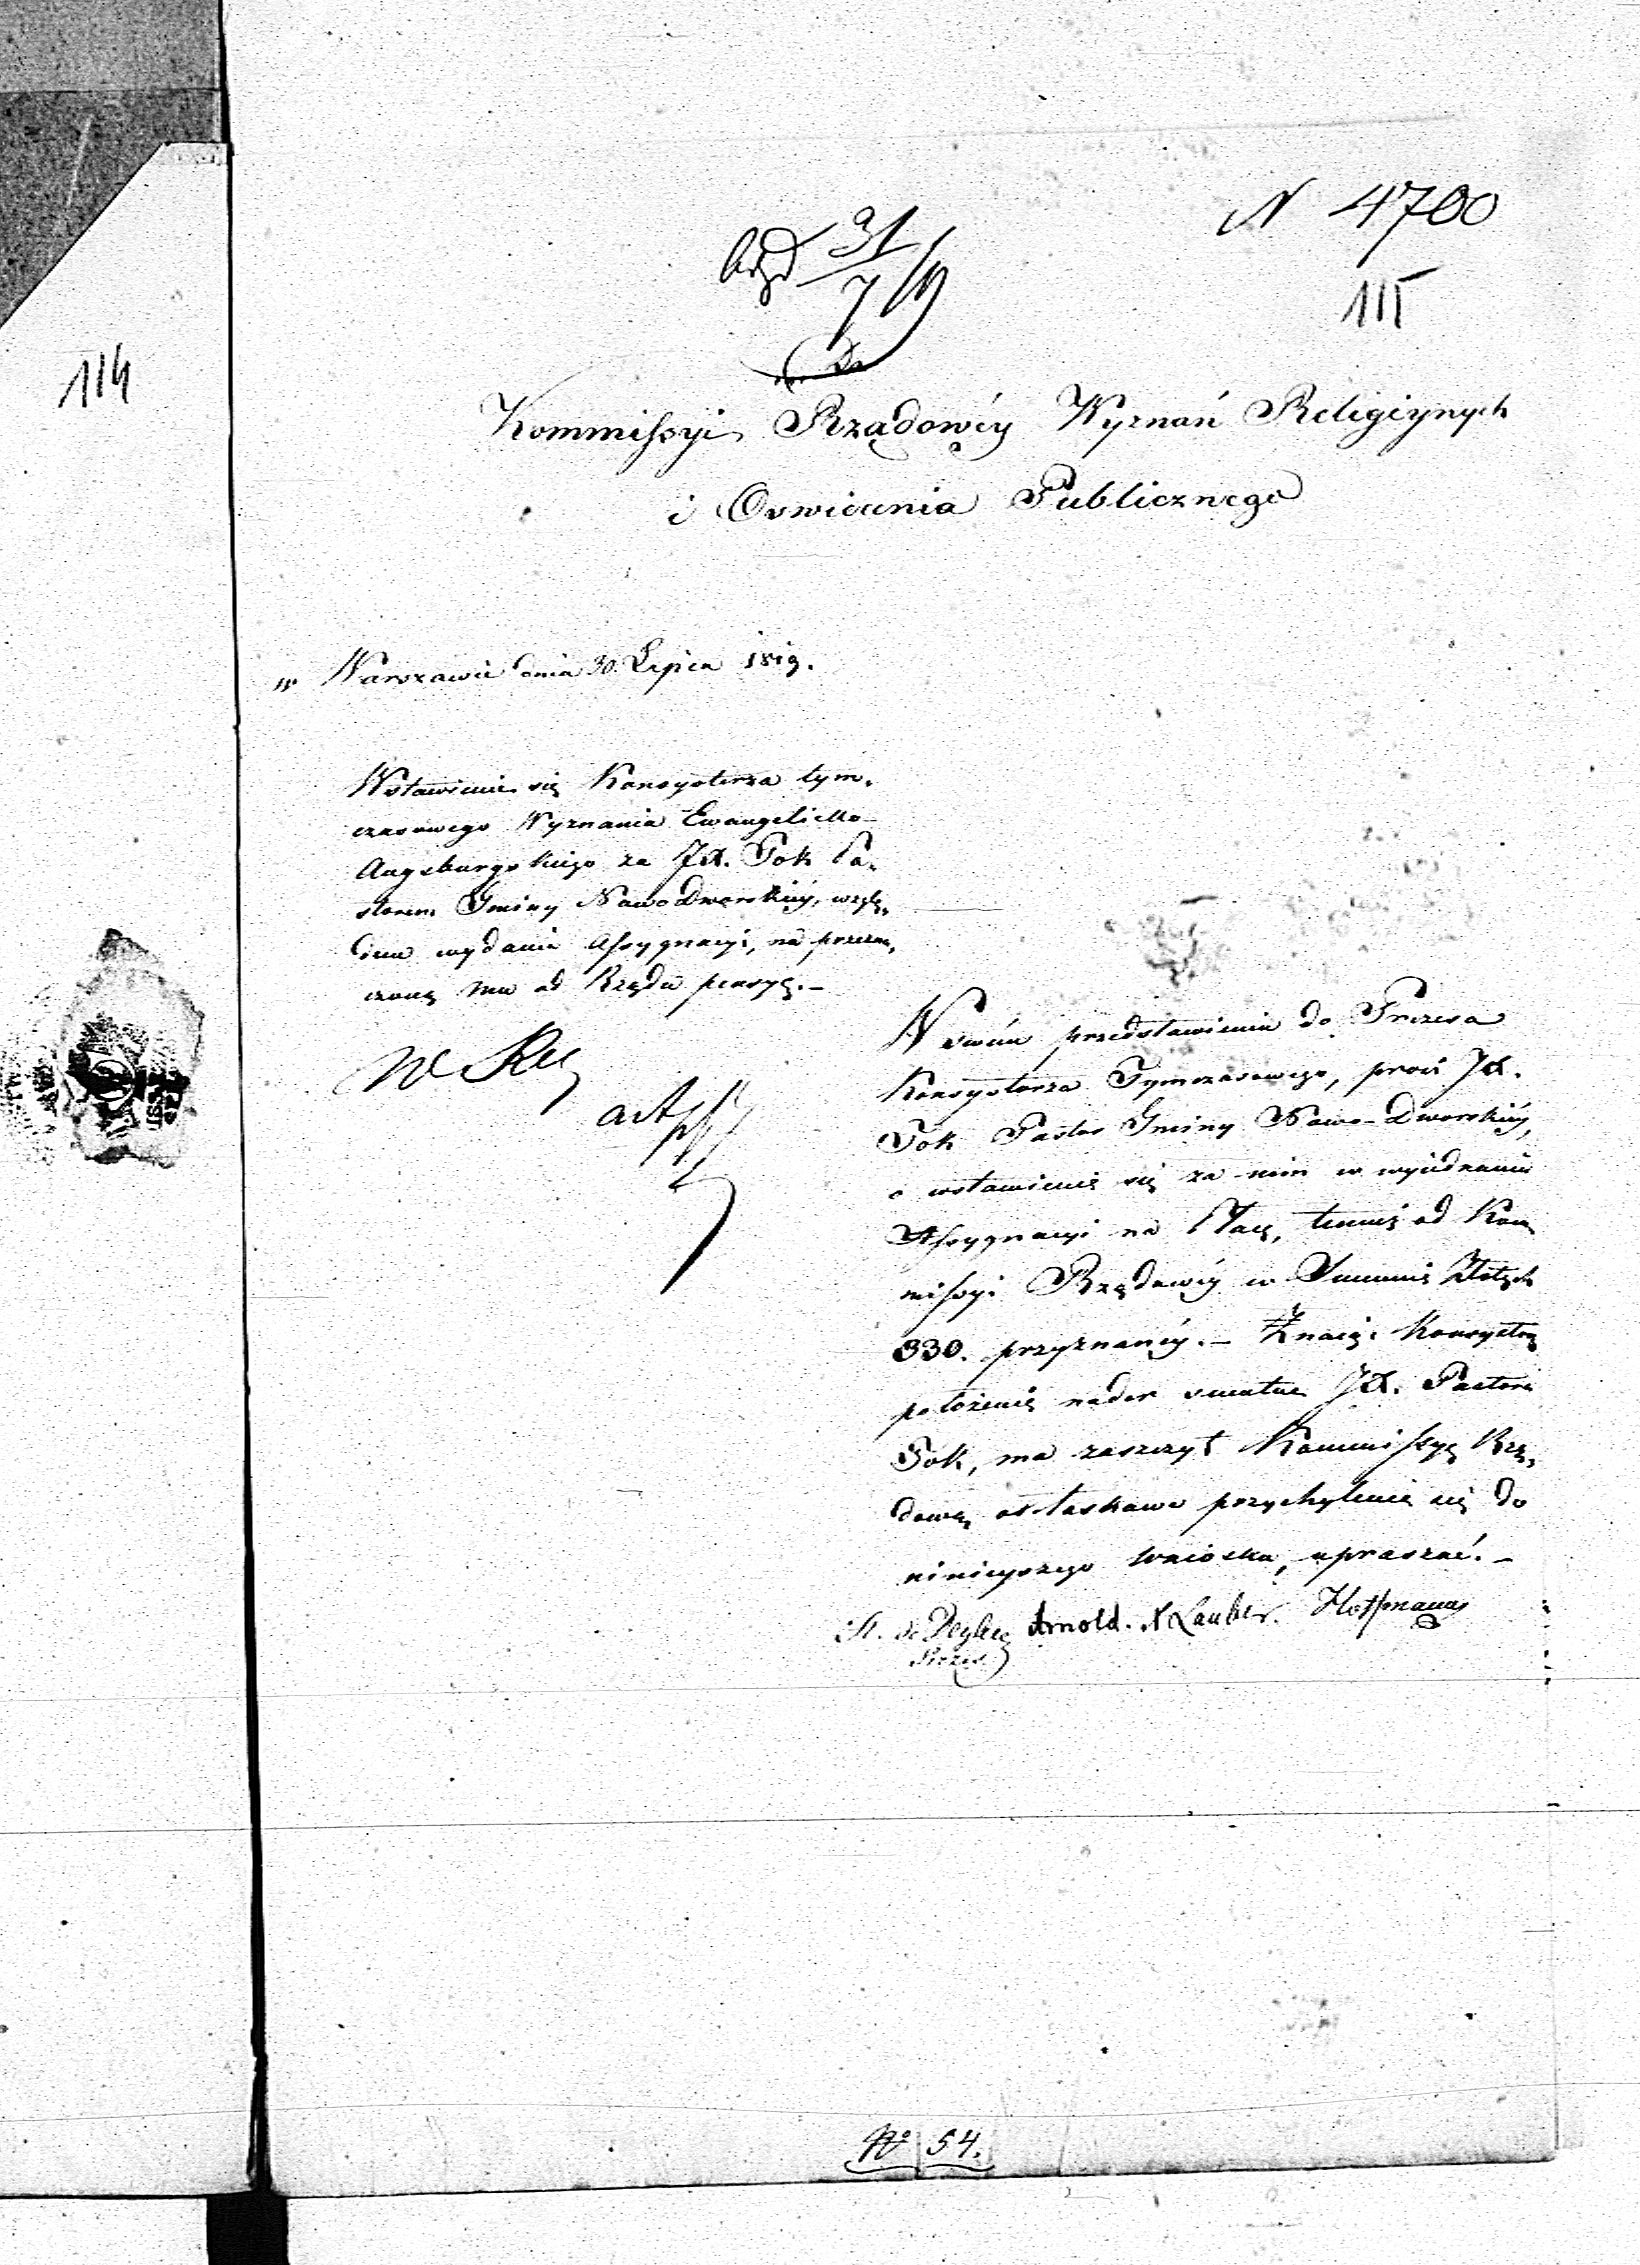 N 4700
31
7/19
115
114
Do
Kommissyi Rządowéy Wyznań Religiynych
i Oswiecenia Publicznego
w Warszawie dnia 30. Lipca 1819.
Wstawienie się Konsystorza tym,
czasowego Wyznania Ewangelicko-
Augsburgskiego za JX. Tok Pa,
storem Gminy NowoDworskiéy, wzglę,
dem wydania Assygnacyi, na przezna,
czoną mu od Rządu pensyą.-
W swém przedstawieniu do Prezesa
Konsystorza Tymczasowego, prosi JX.
Tok Pastor Gminy Nowo-Dworskiéy,
o wstawienie się za nim w wyiednaniu
Assygnacyi na Płacę, temuż od Kom,
missyi Rządowéy w Summie Złotych
330. przyznanéy.- Znaiąc Konsystorz
położenie nader smutne JX. Pastora
Tok, ma zaszczyt Kommissyę Rzą,
dową o łaskawe przychylenie się do
ninieyszego wniosku, upraszać.-
Arnold. Lauber. Hoffmann
Prezes
No 54.